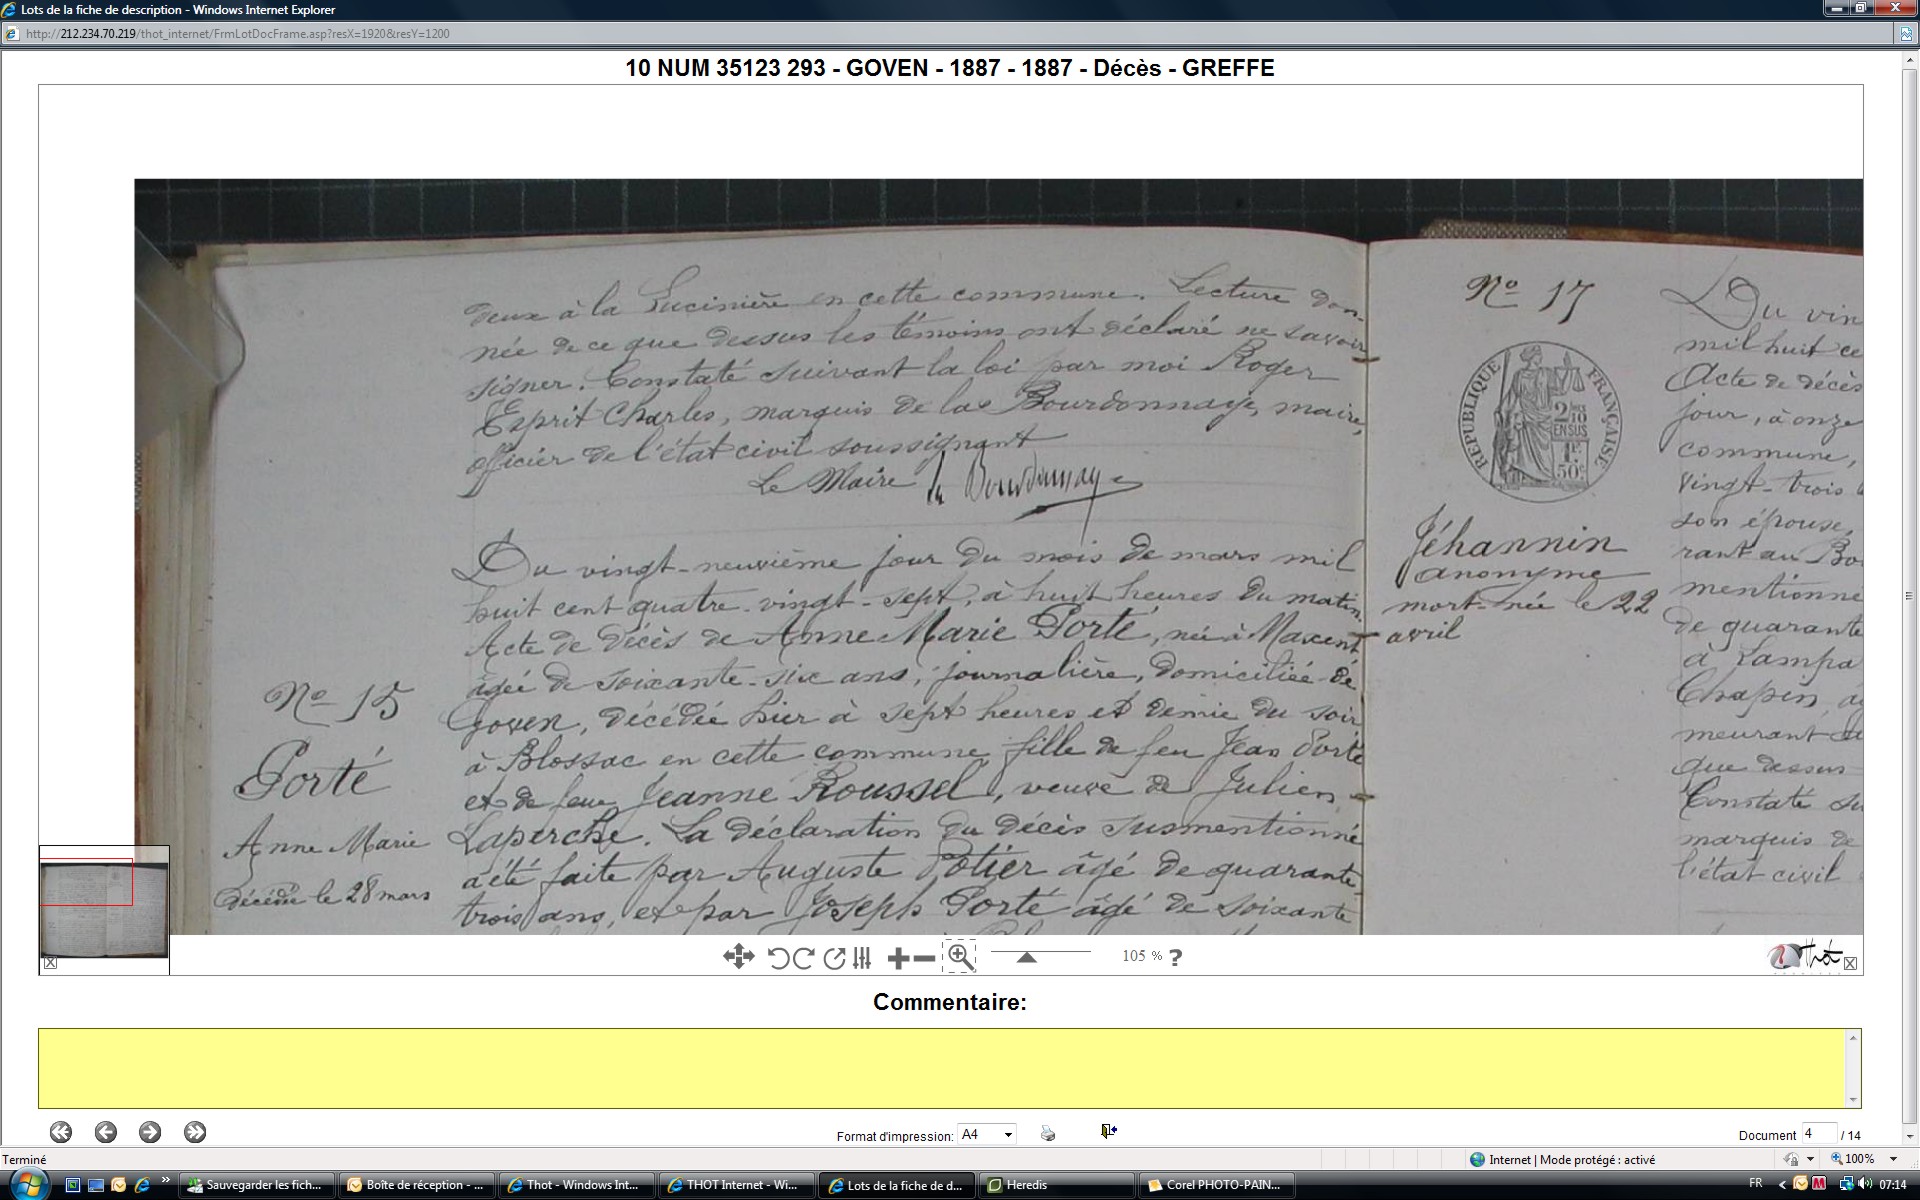 Lots de la fiche de description - Windows Internet Explorer
http://212.234.70.219/thot_internet/FrmLotDocFrame.asp?resX=1920&resY=1200
10 NUM 35123 293 - GOVEN - 1887 - 1887 - Décès - GREFFE
deux à la Pucinière en cette commune. Lecture don-
née de ce que dessus les témoins ont déclaré ne savoir
signer. Constaté suivant la loi par moi Roger
Esprit Charles, marquis de la Bourdonnaye, maire,
officier de l'état civil soussignant
Le Maire la Bourdonnaye
Du vingt-neuvième jour du mois de mars mil
huit cent quatre-vingt-sept, à huit heures du matin.
Acte de décès de Anne Marie Porté, née à Maxent
âgée de soixante-six ans, journalière, domiciliée de
Goven, décédée hier à sept heures et demie du soir
à Blossac en cette commune fille de feu Jean Porté
et de feue Jeanne Roussel, veuve de Julien
Laperche. La déclaration du décès susmentionné
a été faite par Auguste Potier âgé de quarante-
trois ans, et par Joseph Porté âgé de soixante
No 15
Porté
Anne Marie
décédée le 28 mars
No 17
REPUBLIQUE FRANÇAISE
2/10 EN SUS
1F 50c
Jéhannin
anonyme
mort-née le 22
avril
Du vin
mil huit ce
Acte de décès
jour, à onze
commune,
vingt-trois
son épouse,
rant au Bo
mentionné
de quarante
à Lampa
Chapin, âg
meurant
que dessus
Constaté su
marquis de
l'état civil
105 % ?
Thot
Commentaire:
Format d'impression: A4
Document 4 / 14
Terminé
Internet | Mode protégé : activé
100%
Sauvegarder les fich...
Boîte de réception - ...
Thot - Windows Int...
THOT Internet - Wi...
Lots de la fiche de d...
Heredis
Corel PHOTO-PAIN...
FR
07:14